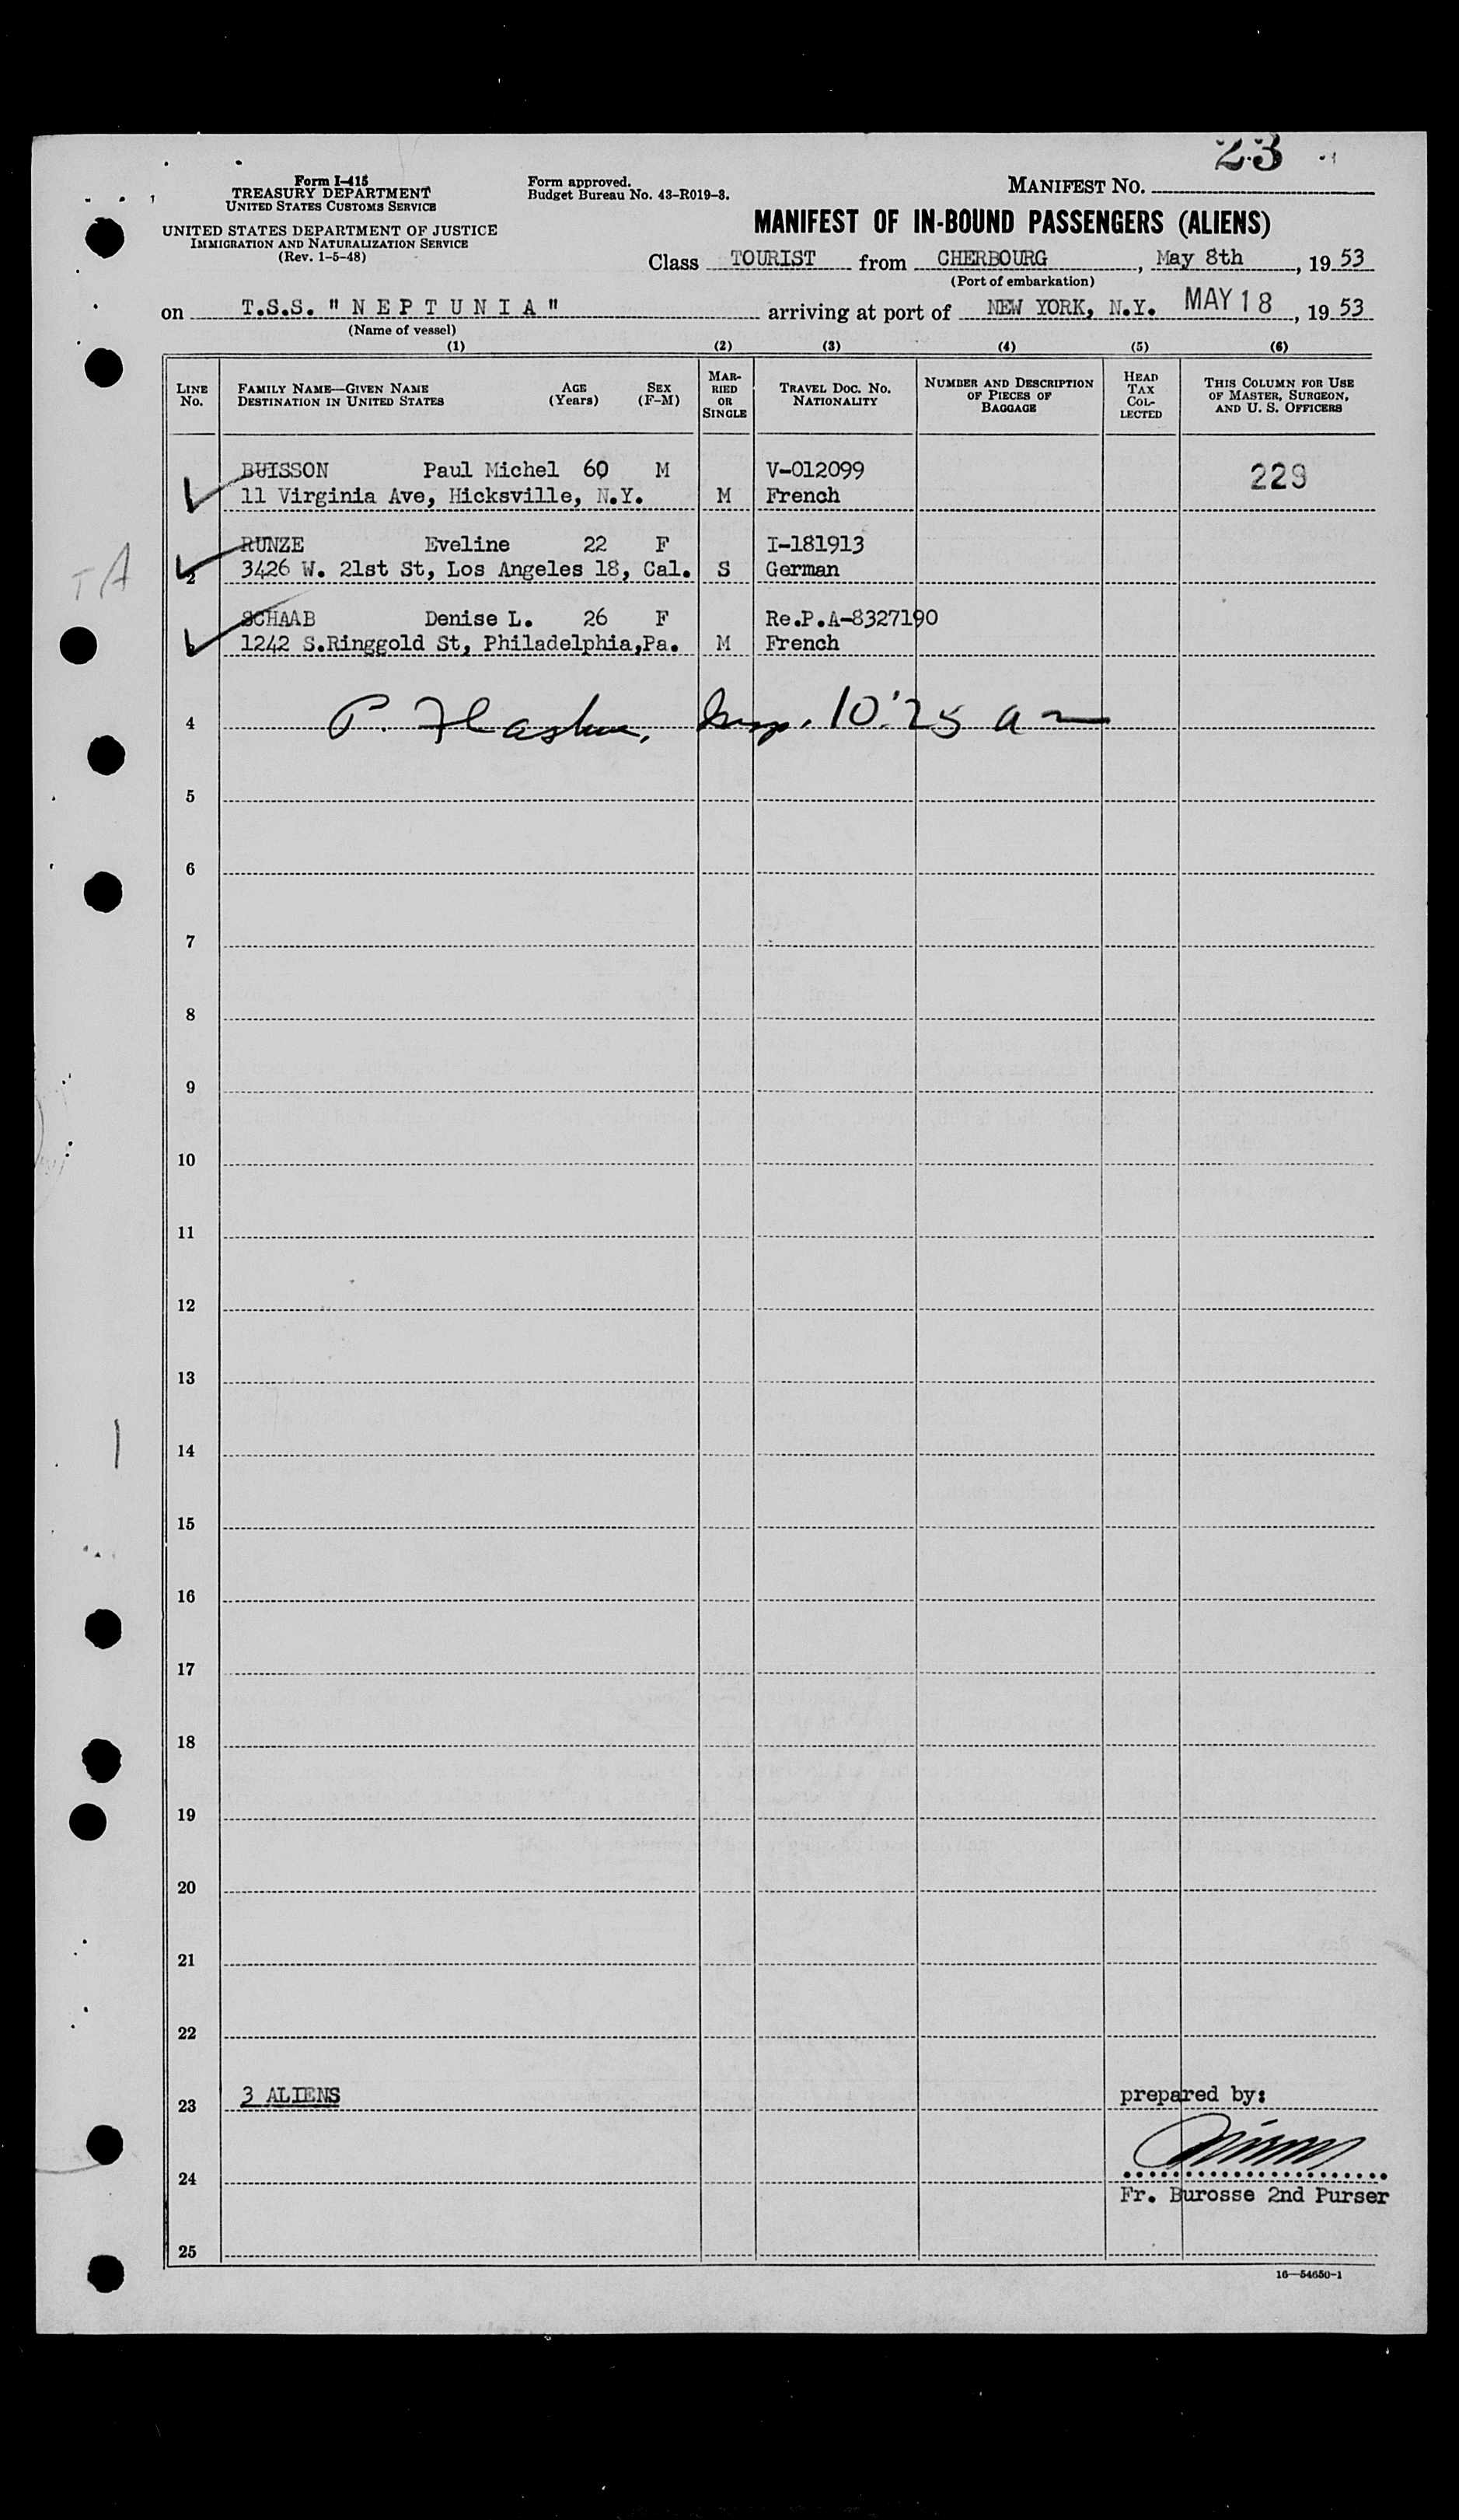 23
Form I-415
TREASURY DEPARTMENT
UNITED STATES CUSTOMS SERVICE
UNITED STATES DEPARTMENT OF JUSTICE
IMMIGRATION AND NATURALIZATION SERVICE
(Rev. 1-5-48)
Form approved.
Budget Bureau No. 43-R019-3.
MANIFEST NO.
MANIFEST OF IN-BOUND PASSENGERS (ALIENS)
Class TOURIST from CHERBOURG, May 8th, 1953
(Port of embarkation)
on T.S.S. " N E P T U N I A " arriving at port of NEW YORK, N.Y. MAY 18, 1953
(Name of vessel)
(1) (2) (3) (4) (5) (6)
LINE NO.
FAMILY NAME—GIVEN NAME AGE SEX
DESTINATION IN UNITED STATES (Years) (F-M)
MARRIED OR SINGLE
TRAVEL DOC. NO. NATIONALITY
NUMBER AND DESCRIPTION OF PIECES OF BAGGAGE
HEAD TAX COLLECTED
THIS COLUMN FOR USE OF MASTER, SURGEON, AND U. S. OFFICERS
BUISSON Paul Michel 60 M V-012099 229
11 Virginia Ave, Hicksville, N.Y. M French
RUNZE Eveline 22 F I-181913
TA
2 3426 W. 21st St, Los Angeles 18, Cal. S German
SCHAAB Denise L. 26 F Re.P.A-8327190
1242 S.Ringgold St, Philadelphia,Pa. M French
4 P. 10:25 am
5
6
7
8
9
10
11
12
13
14
15
16
17
18
19
20
21
22
23 3 ALIENS prepared by:
24
Fr. Burosse 2nd Purser
25
16—54650-1